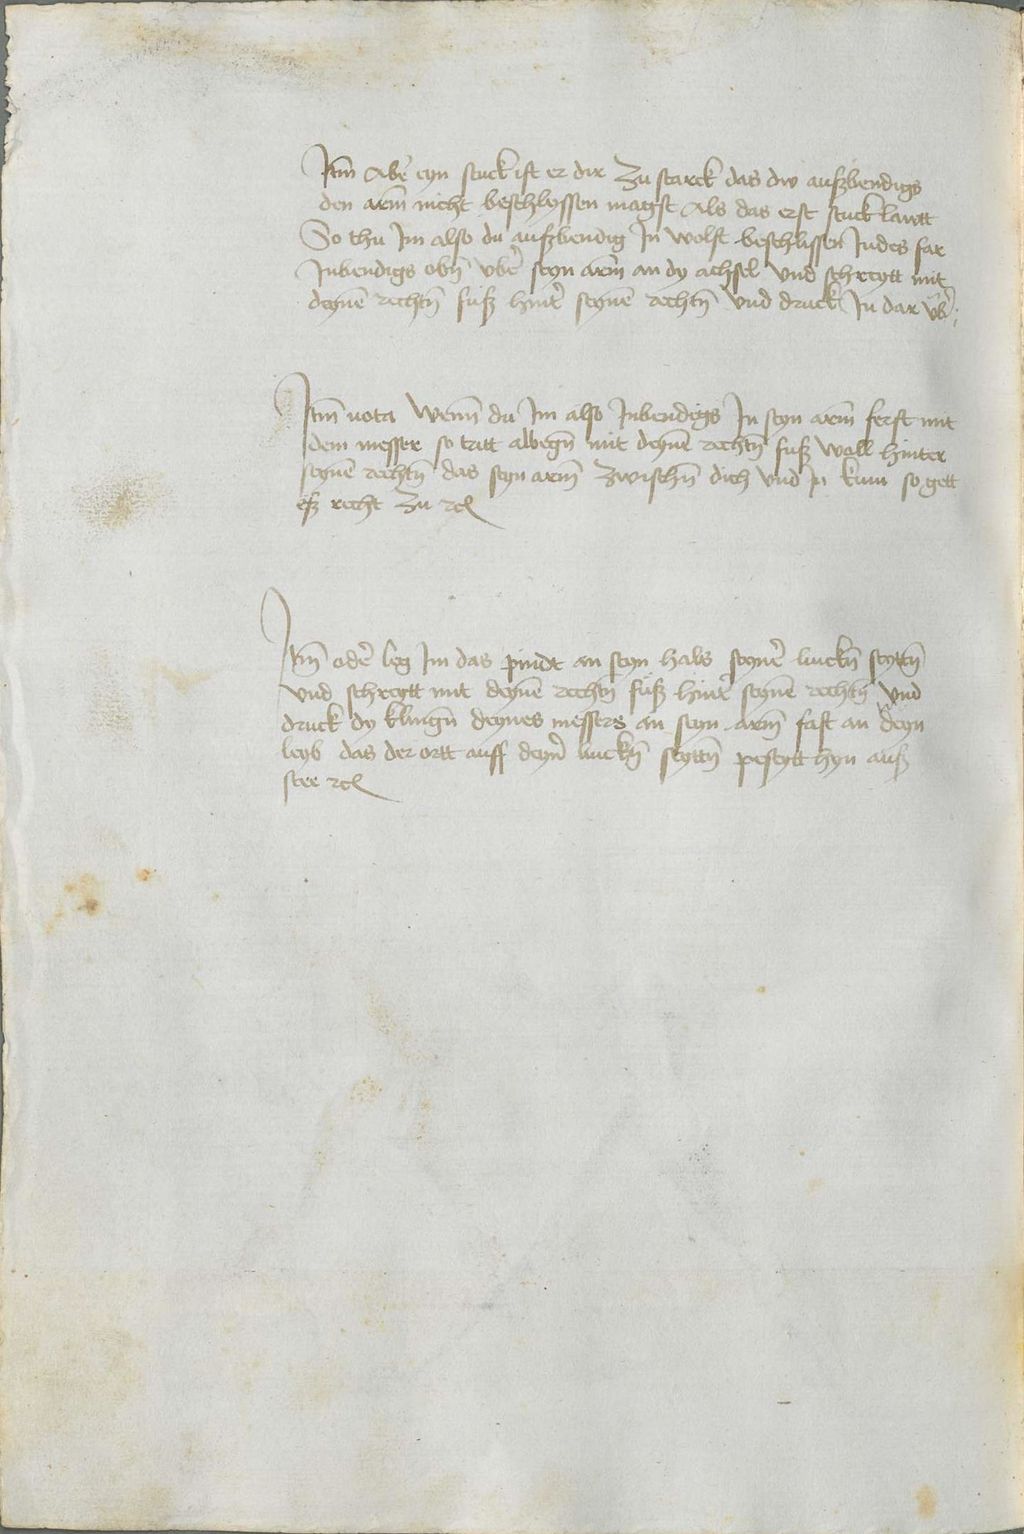 Itm̄ Abe͛ eyn stuck ist er dir Zu starck das dw außbendigs
den arm̄ nicht beschlyssen magst Als das erst stuck lawtt
So thu Im also du außbendig In wolst beschlissen Indes far
Inbendigs obn̄ vbe͛ seyn arm̄ an dy achsel Vnd schreytt mit
deyne͂ rechtn̄ fuß hint͛ seyne͂ rechtn̄ Vnd druck In dar vb͛
Itm̄ nota Wenn̄ du Im also Inbendigs In seyn arm̄ ferst mit
dem messer so tritt albegn̄ mit deyne͂ rechtn̄ fuß woll hinter
seyne͂ rechtn̄ das seyn arm̄ Zwischn̄ dich Vnd In kum so gett
eß recht Zu ꝛcꝭ
Itm̄ ode͛ leg Im das pindt an seyn hals seyne͛ linckn̄ seyttn̄
Vnd schreytt mit deyne͂ rechtn̄ fuß hint͛ seyne͂ rechtn̄ Vnd
druck dy klingn̄ deynes messers an seyn arm̄ fast an deyn
leyb das der ortt auff deyn͛ linckn̄ seyttn̄ peseytt hyn auß
stee ꝛcꝭ